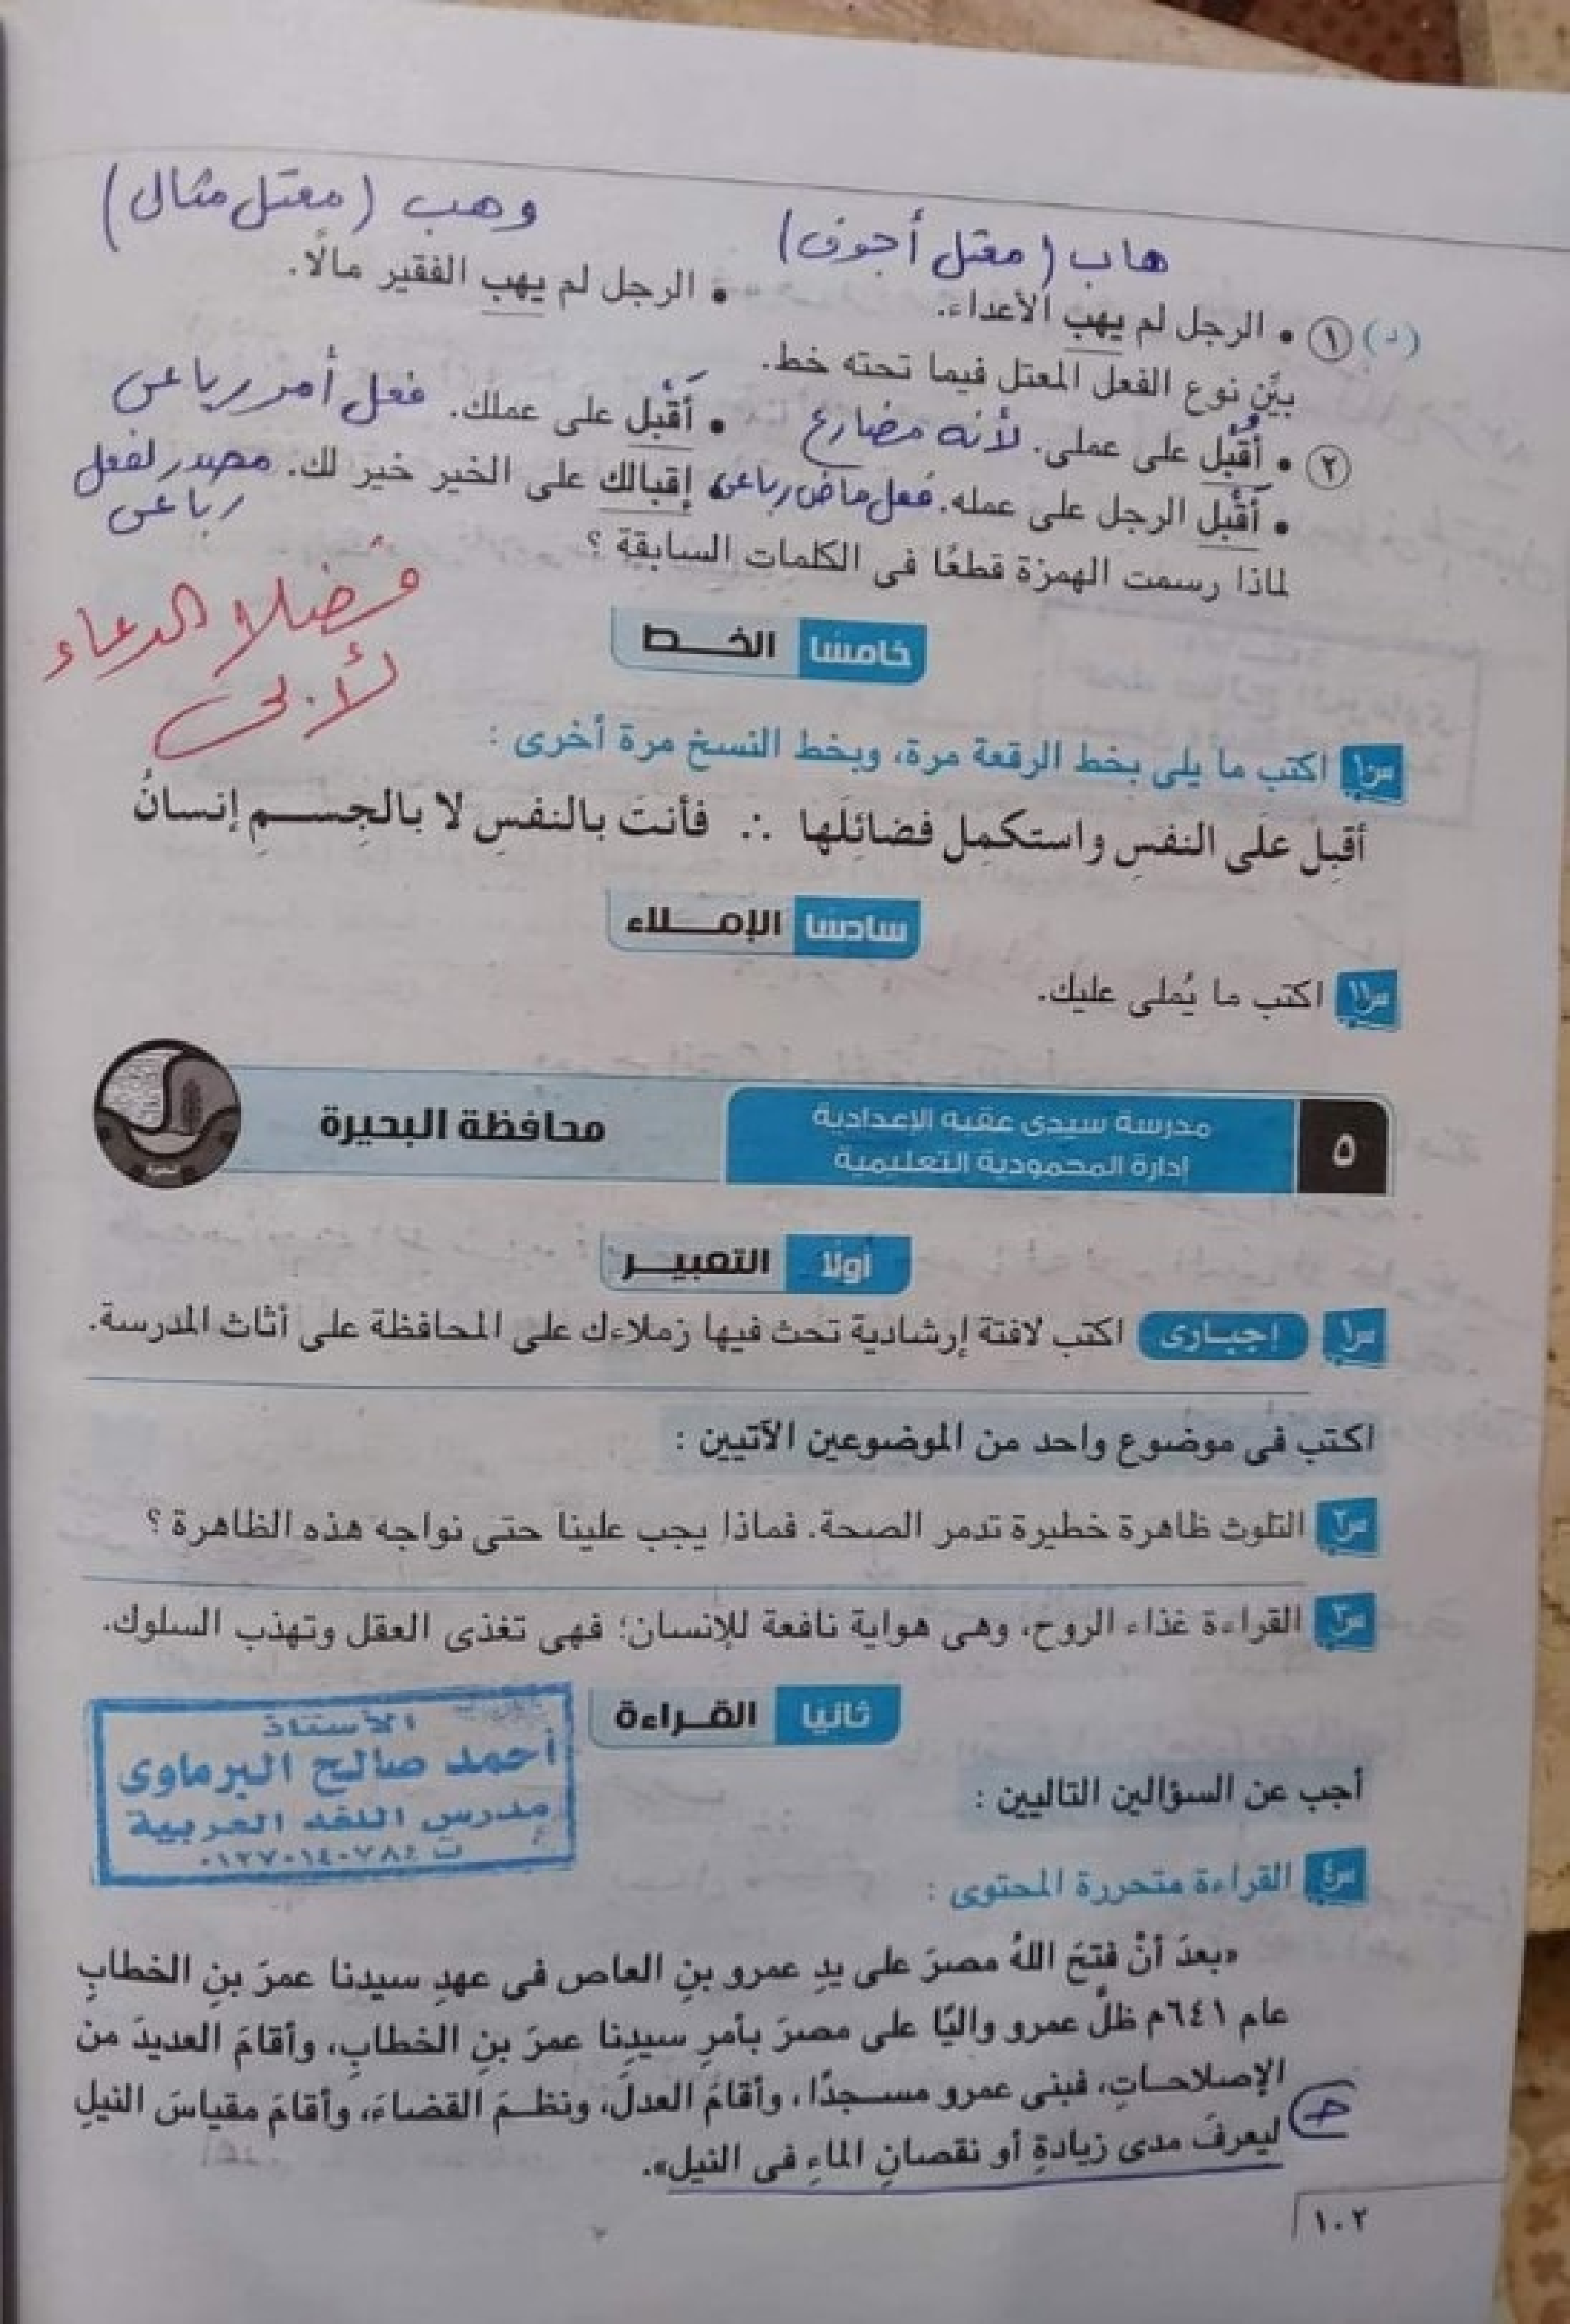 هاب (معتل أجوف) وهب (معتل مثالى)
(د) ① • الرجل لم يهب الأعداء. • الرجل لم يهب الفقير مالًا.
بيِّن نوع الفعل المعتل فيما تحته خط.
② • أُقْبِل على عملى. لأنه مضارع • أَقْبِل على عملك. فعل أمر رباعى
• أَقْبَل الرجل على عمله. فعل ماض رباعى • إقبالك على الخير خير لك. مصدر لفعل رباعى
لماذا رسمت الهمزة قطعًا فى الكلمات السابقة ؟
فضلا الدعاء
لأبى
خامسًا الخـط
س١٠ اكتب ما يلى بخط الرقعة مرة، وبخط النسخ مرة أخرى :
أقبِل علَى النفسِ واستكمِل فضائِلَها ∴ فأنتَ بالنفسِ لا بالجِسـمِ إنسانُ
سادسًا الإمـلاء
س١١ اكتب ما يُملى عليك.
٥ مدرسة سيدى عقبة الإعدادية محافظة البحيرة
إدارة المحمودية التعليمية
أولًا التعبيـر
س١ إجبارى اكتب لافتة إرشادية تحث فيها زملاءك على المحافظة على أثاث المدرسة.
اكتب فى موضوع واحد من الموضوعين الآتيين :
س٢ التلوث ظاهرة خطيرة تدمر الصحة. فماذا يجب علينا حتى نواجه هذه الظاهرة ؟
س٣ القراءة غذاء الروح، وهى هواية نافعة للإنسان؛ فهى تغذى العقل وتهذب السلوك.
ثانيًا القـراءة
الأستاذ
أحمد صالح البرماوى
مدرس اللغة العربية
أجب عن السؤالين التاليين :
س٤ القراءة متحررة المحتوى :
«بعدَ أنْ فتحَ اللهُ مصرَ على يدِ عمرو بنِ العاص فى عهدِ سيدنا عمرَ بنِ الخطابِ
عام ٦٤١م ظلَّ عمرو واليًا على مصرَ بأمرِ سيدِنا عمرَ بنِ الخطابِ، وأقامَ العديدَ من
الإصلاحـاتِ، فبنى عمرو مسـجدًا، وأقامَ العدلَ، ونظـمَ القضاءَ، وأقامَ مقياسَ النيلِ
ليعرفَ مدى زيادةِ أو نقصانِ الماءِ فى النيلِ».
١٠٢